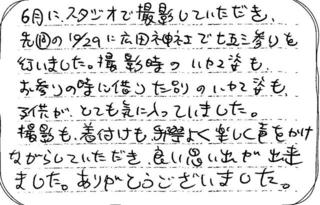 6月に、スタジオで撮影していただき、
先週の10/29に広田神社で七五三参りを
行いました。撮影時のいでたち姿も、
お参りの時に借りた別のいでたち姿も、
子供が、とても気に入っていました。
撮影も、着付けも手際よく楽しく声をかけ
ながらしていただき、良い思い出が出来
ました。ありがとうございました。